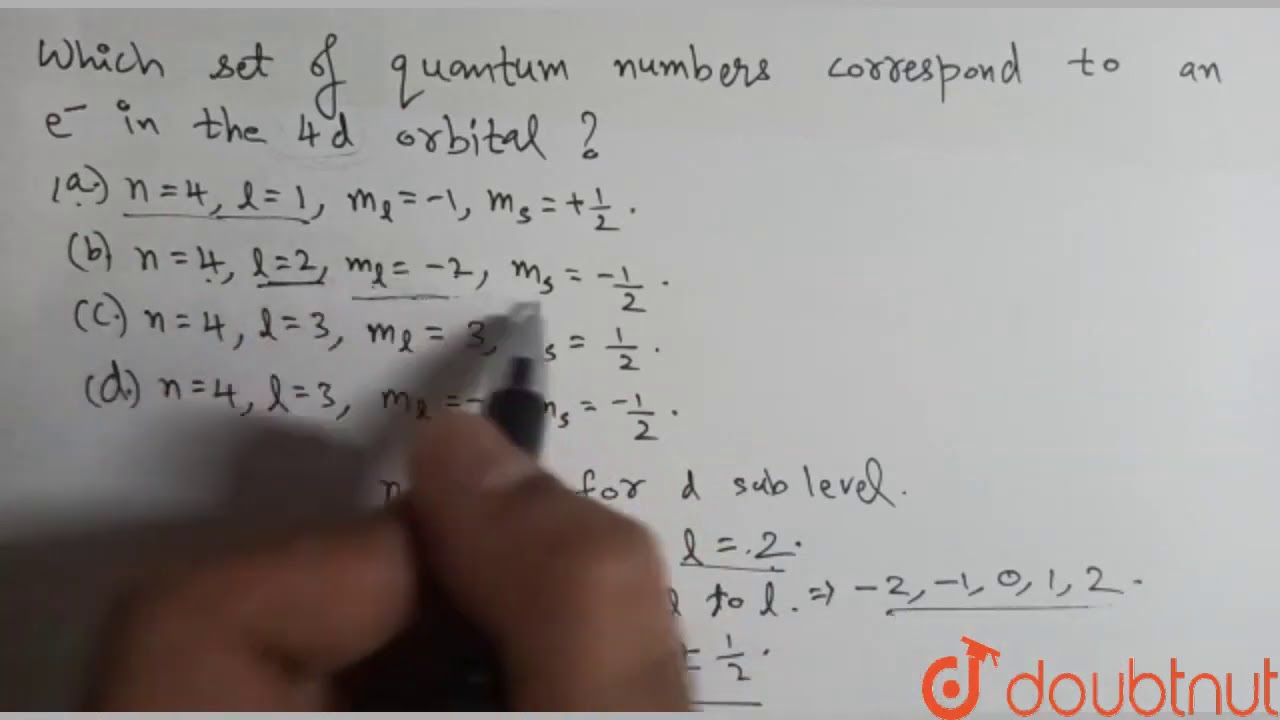 Which set of quantum numbers correspond to an
e⁻ in the 4d orbital ?
(a.) n = 4, l = 1, mₗ = -1, mₛ = + 1/2 .
(b) n = 4, l = 2, mₗ = -2, mₛ = - 1/2 .
(c.) n = 4, l = 3, mₗ = 3, s = 1/2 .
(d.) n = 4, l = 3, mₗ = - mₛ = - 1/2 .
n for d sub level.
l = 2.
to l. ⇒ -2, -1, 0, 1, 2 .
= 1/2 .
doubtnut